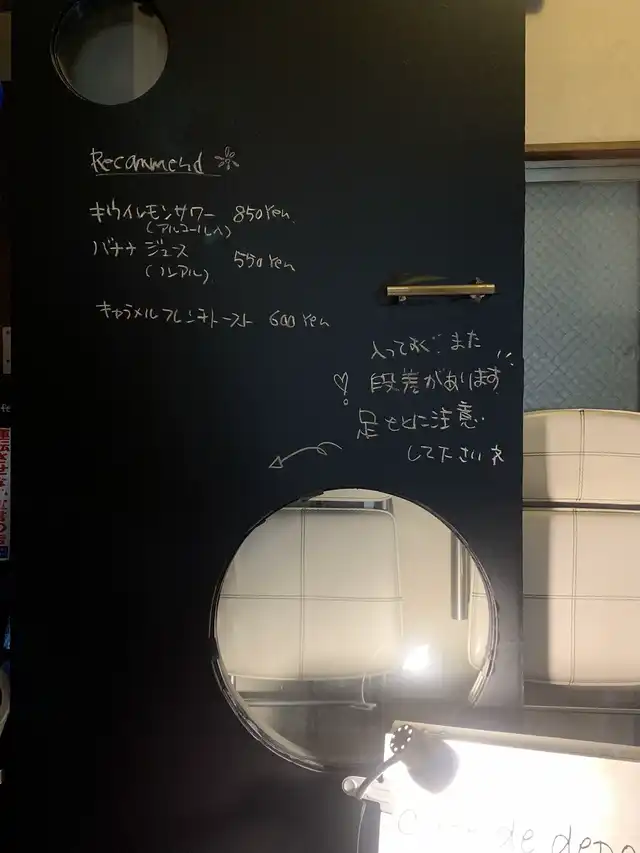 Recommend
キウイレモンサワー 850 Yen
(アルコール入)
バナナ ジュース 550 Yen
(ノンアル)
キャラメルフレンチトースト 600 Yen
入ってすぐ、また
段差があります
足もとに注意
して下さいネ
de